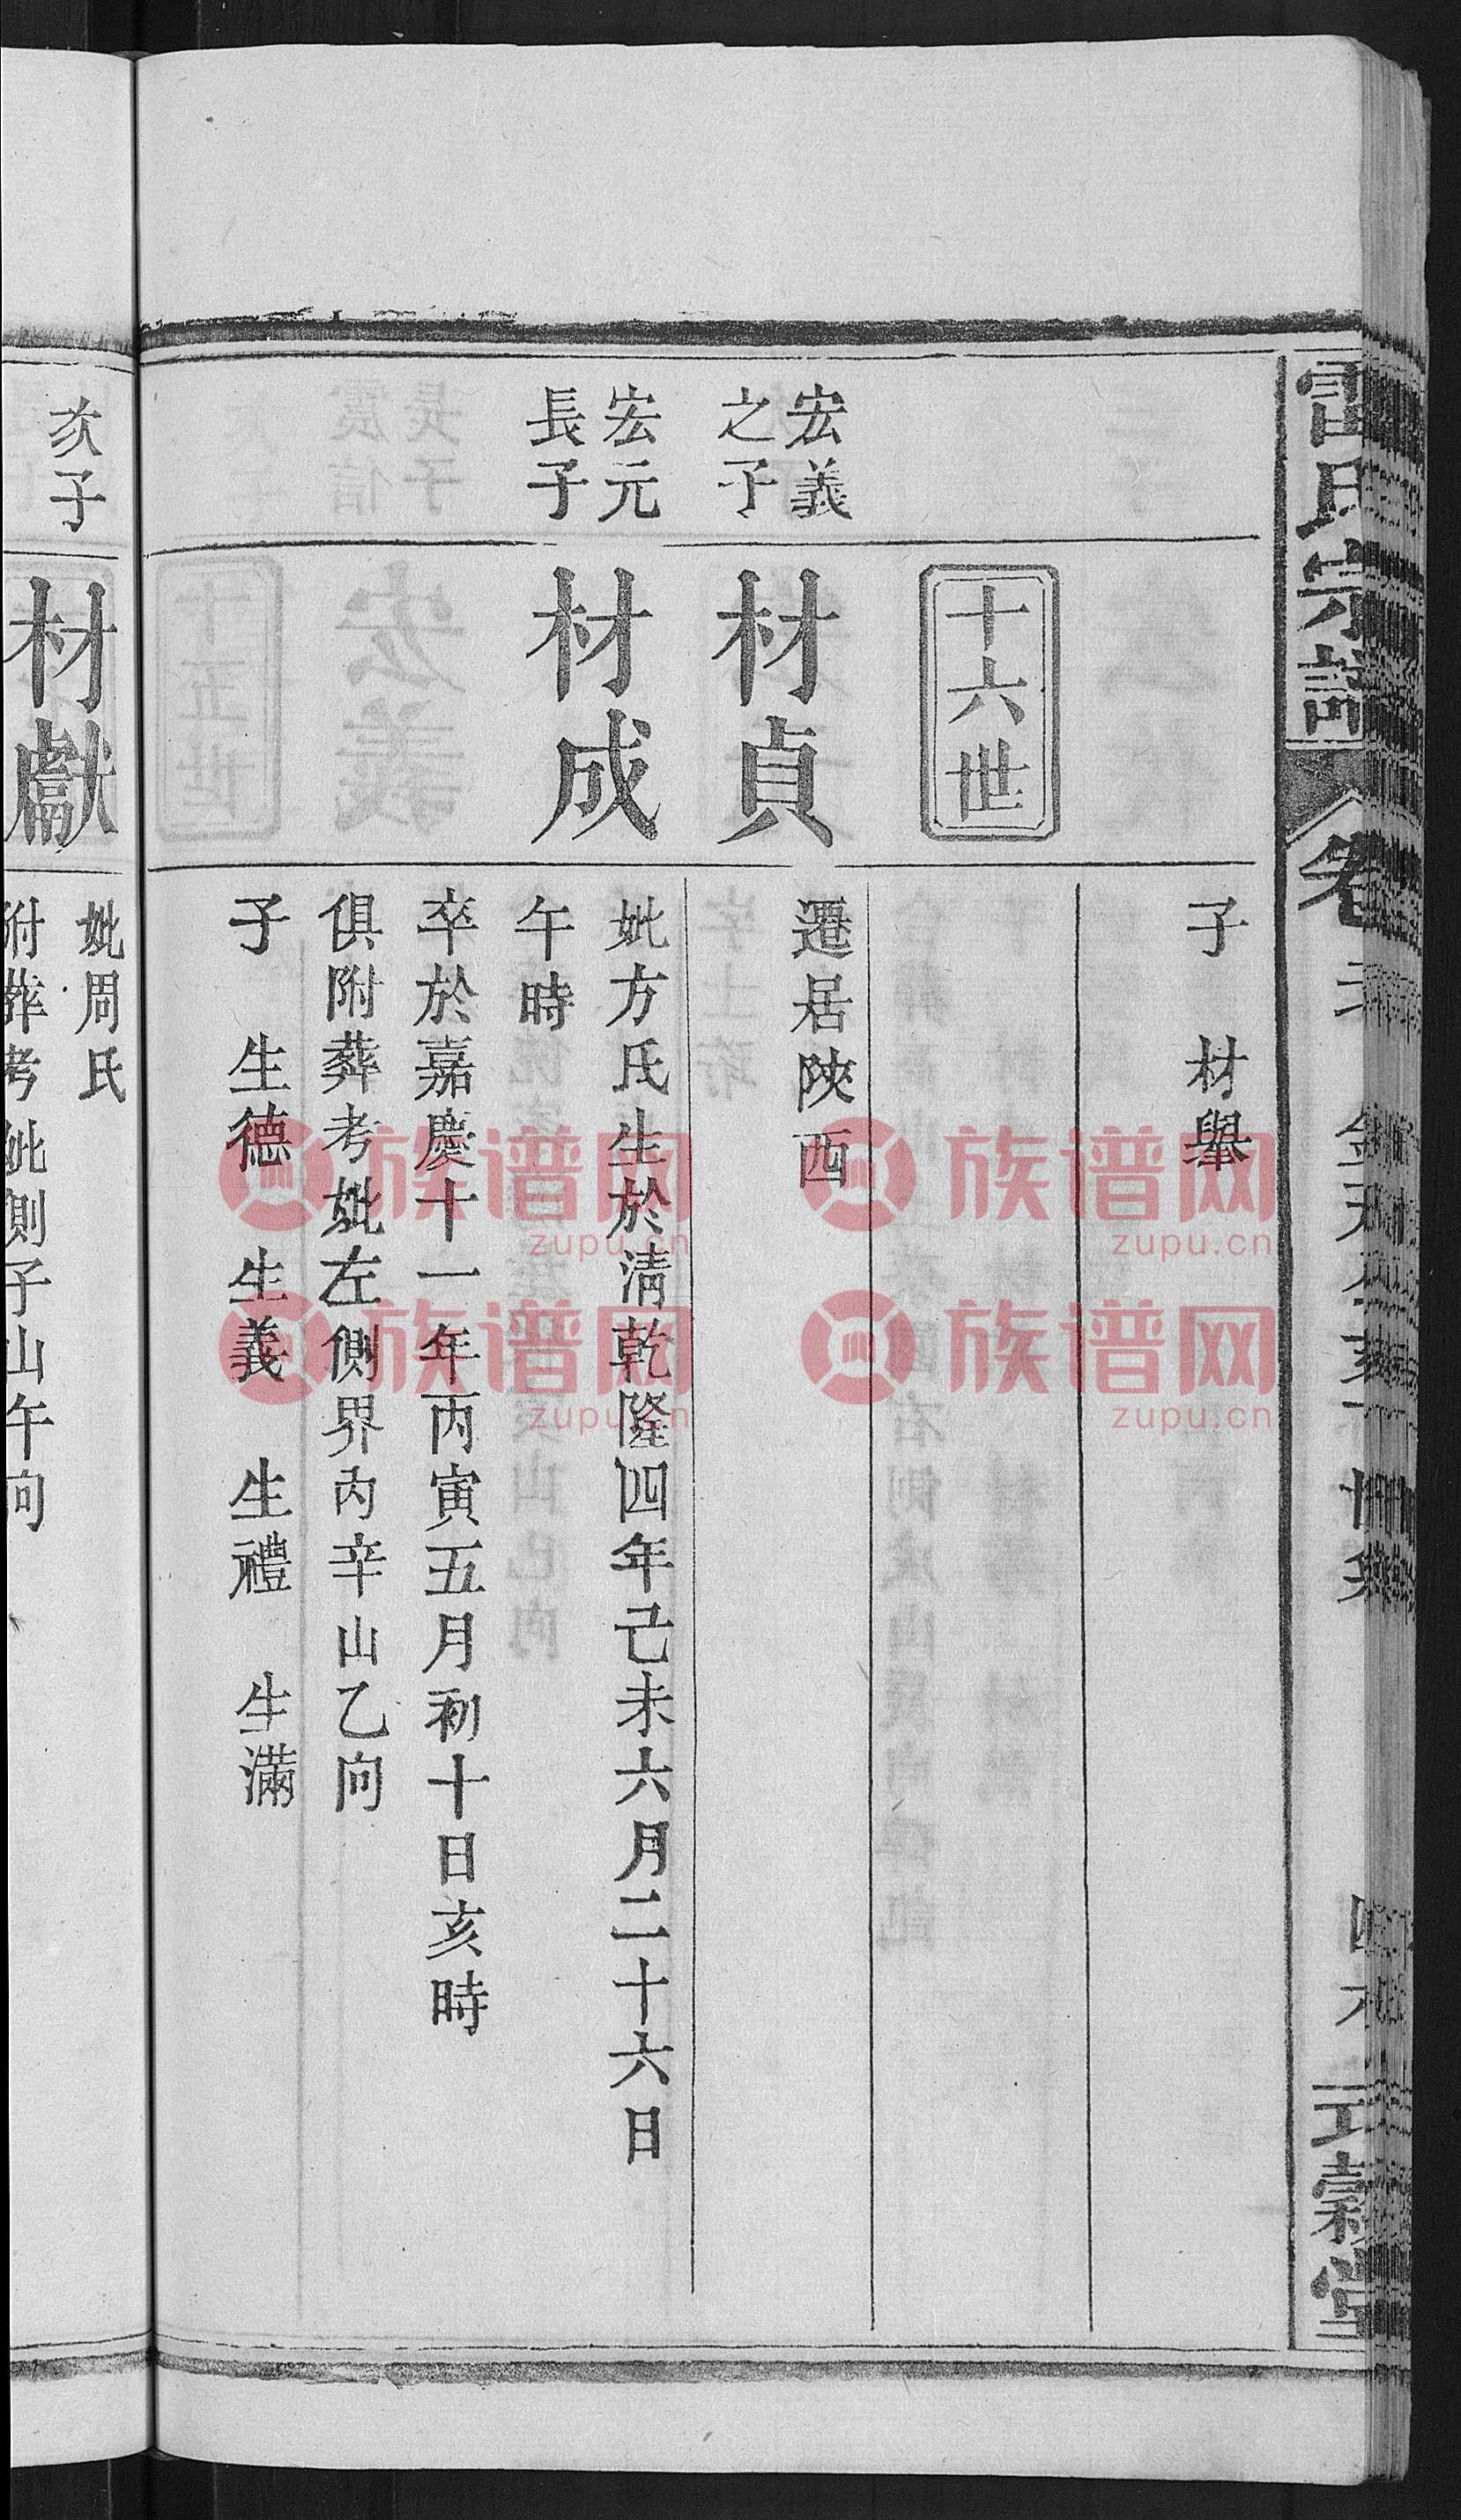 雷氏宗譜
子　材舉
十六世
宏義
之子
材貞
遷居陝西
宏元
長子
材成
妣方氏生於清乾隆四年己未六月二十六日
午時
卒於嘉慶十一年丙寅五月初十日亥時
俱附葬考妣左側界內辛山乙向
子　生德　生義　生禮　生滿
亥子
材獻
妣周氏
附葬考妣側子山午向
族谱网
zupu.cn
族谱网
zupu.cn
族谱网
zupu.cn
族谱网
zupu.cn